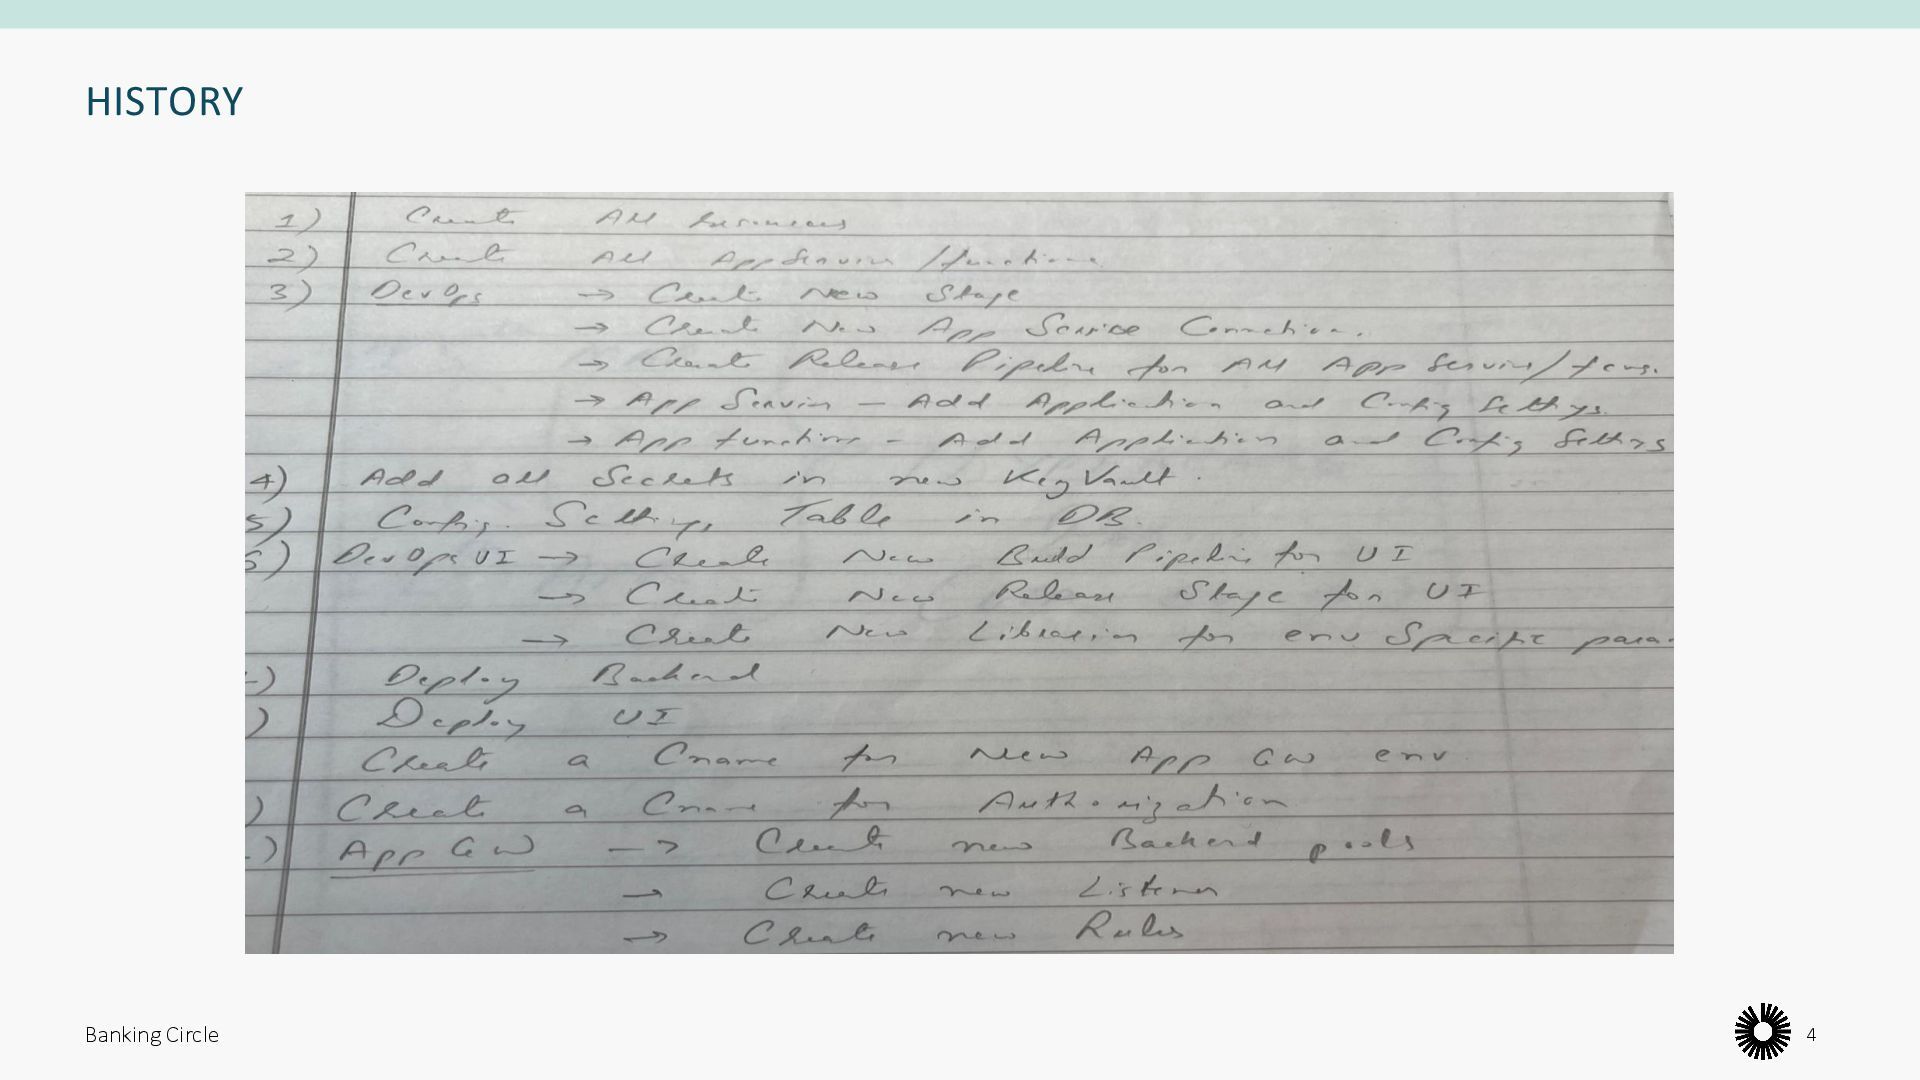 HISTORY
1) Create All resources
2) Create All App Services / functions
3) DevOps → Create New Stage
→ Create New App Service Connection.
→ Create Release Pipeline for All App Services/funs.
→ App Service - Add Application and Config Settings.
→ App functions - Add Application and Config Settings
4) Add all Secrets in new KeyVault.
5) Config. Settings Table in DB.
6) DevOps UI → Create New Build Pipeline for UI
→ Create New Release Stage for UI
→ Create New Libraries for env Specific para
) Deploy Backend
) Deploy UI
Create a Cname for New App GW env
) Create a Cname for Authorization
) App GW → Create new Backend pools
→ Create new Listener
→ Create new Rules
Banking Circle
4